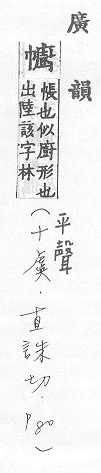 廣韻
㡡
帳也似廚形也
出陸該字林
平聲
(十虞．直誅切．P80)